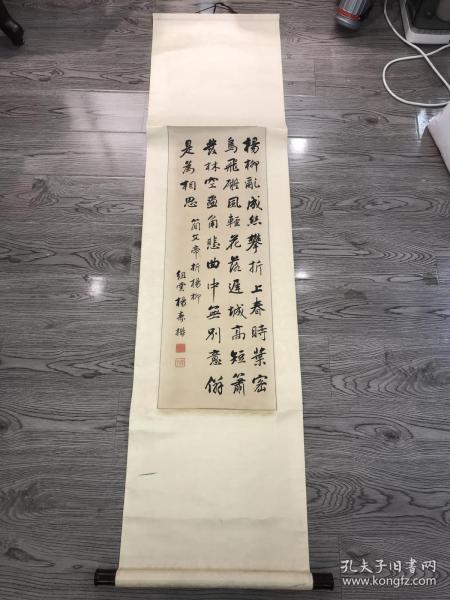 楊柳亂成絲攀折上春時葉密
鳥飛礙風輕花落遲城高短簫
發林空畫角悲曲中無別意併
是為相思
簡文帝折楊柳
楊壽樞
孔夫子旧书网
www.kongfz.com